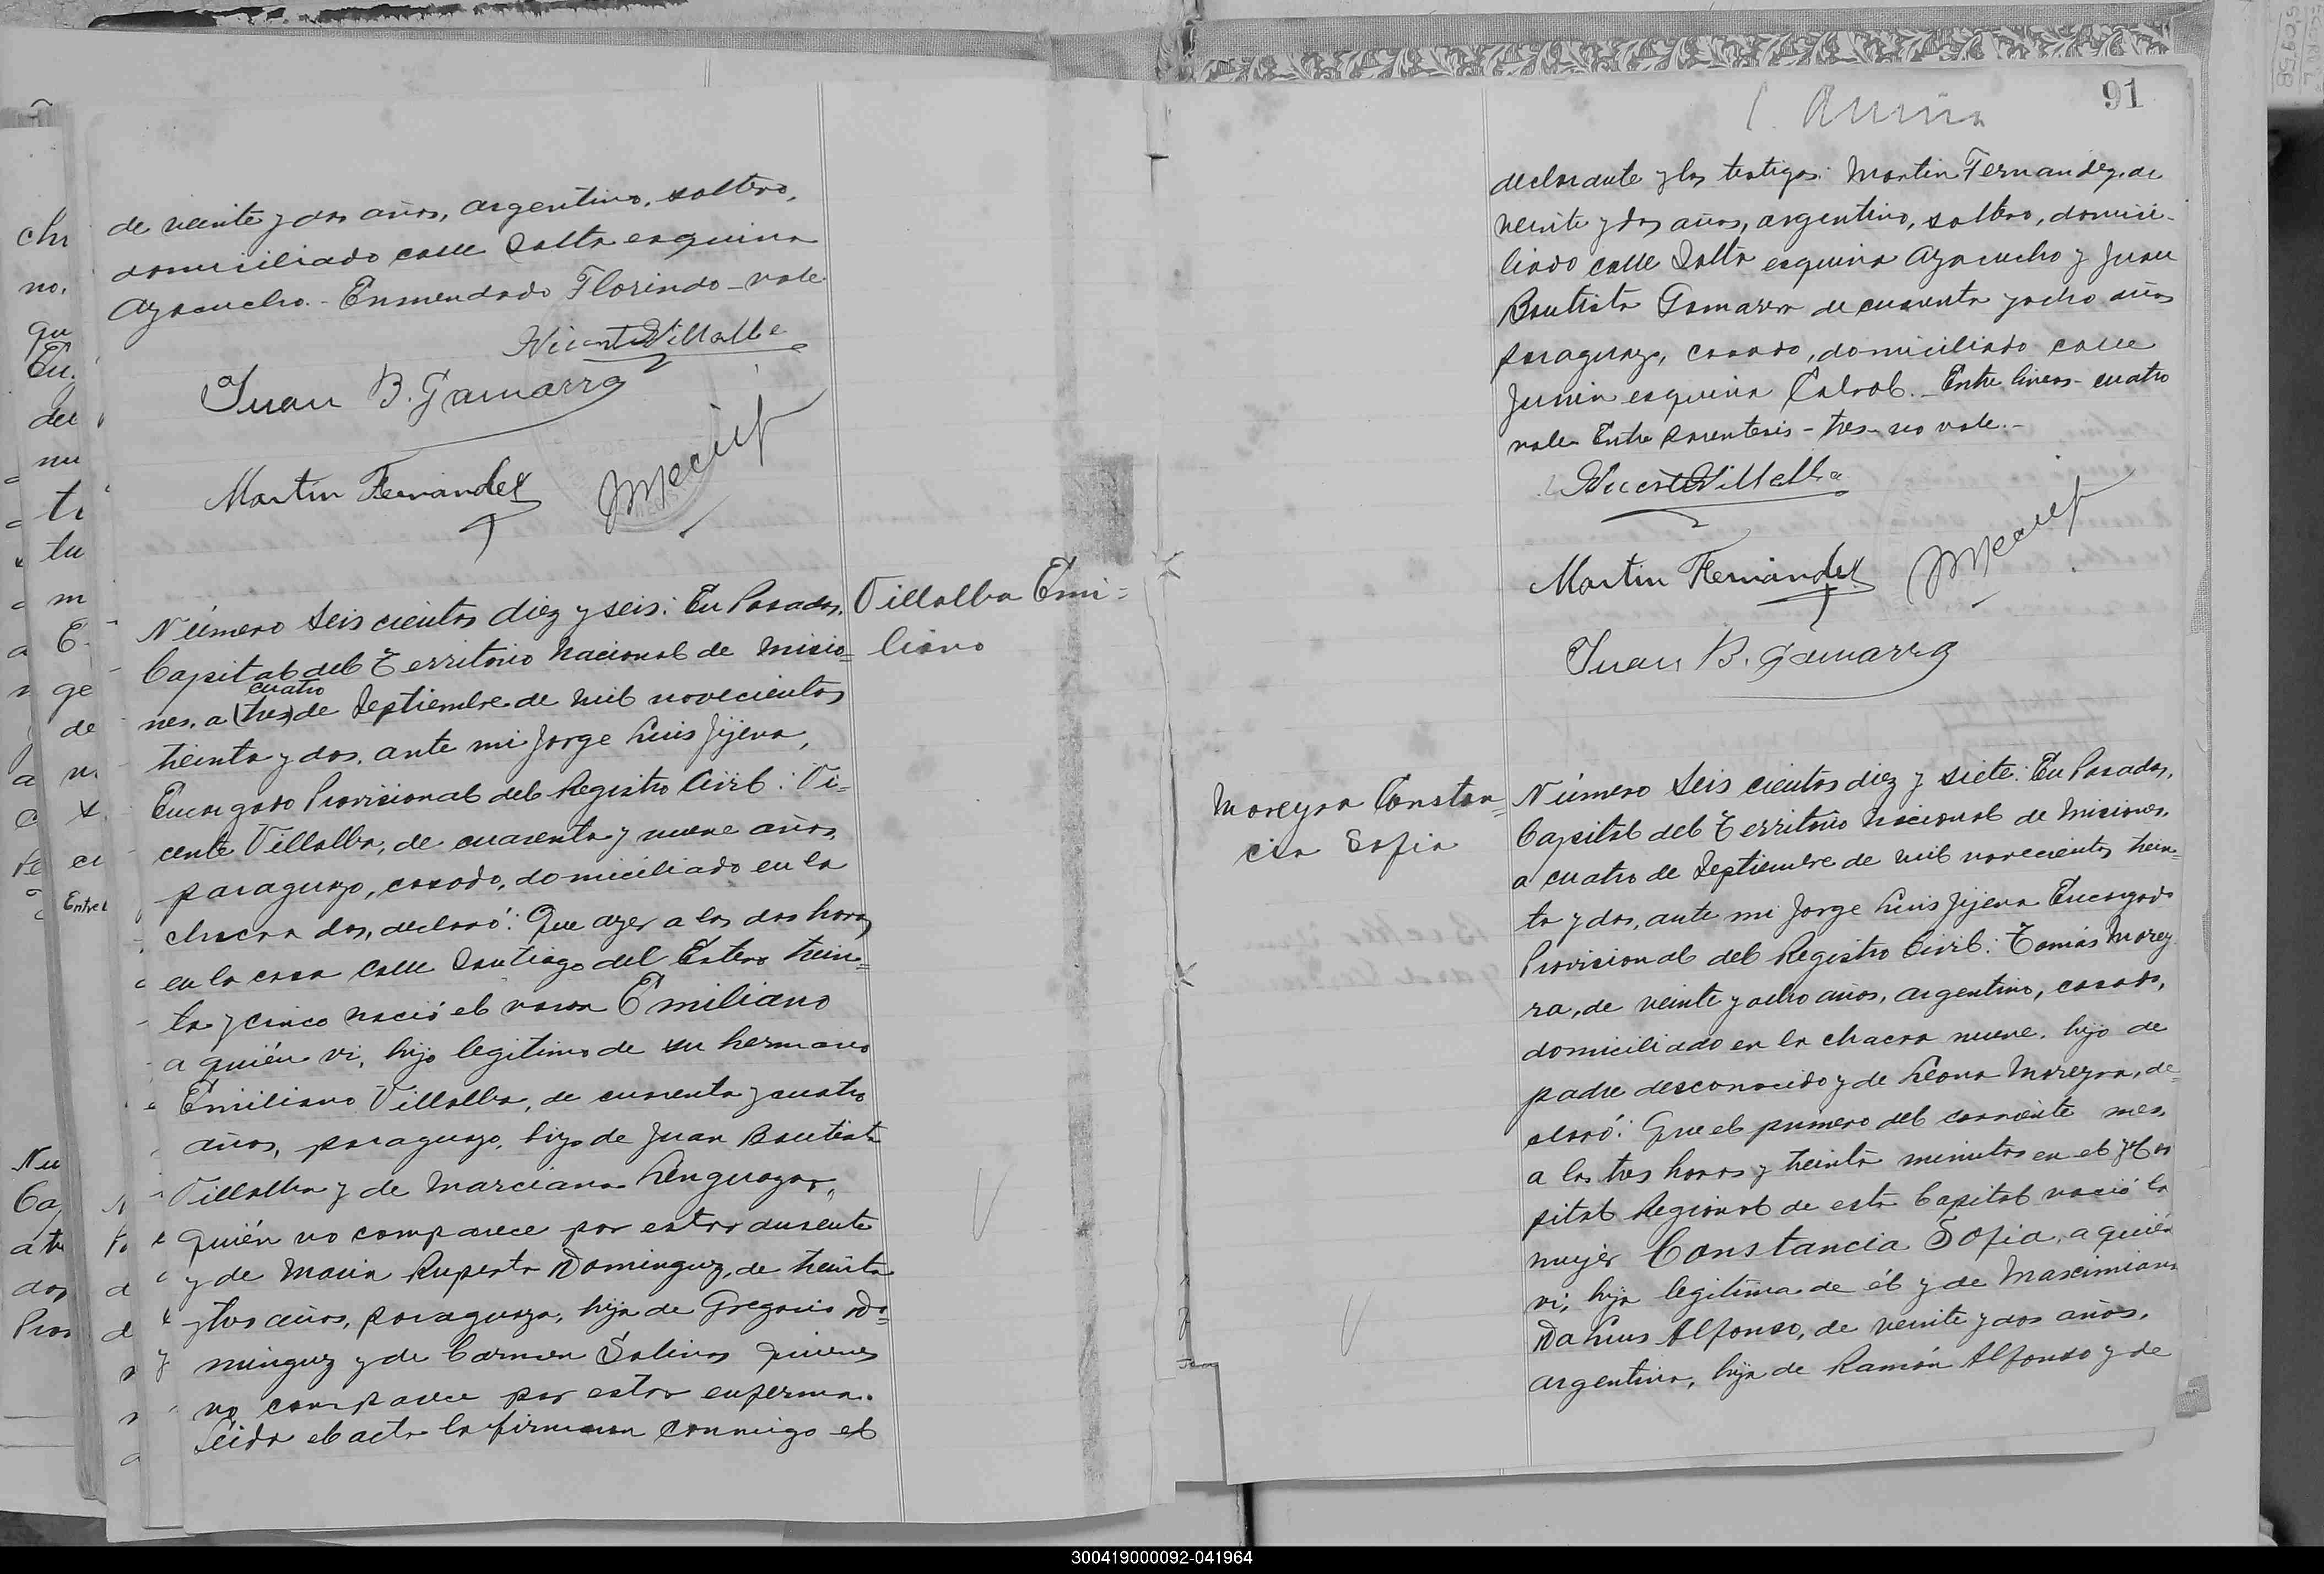 de veinte y dos años, argentino, soltero,
domiciliado calle Salta esquina
Ayacucho.- Enmendado Florindo - vale.
Vicente Villalba
Juan B. Gamarra
Martin Fernandez
Villalba Emi=
liano
Número seis cientos diez y seis: En Posadas,
Capital del Territorio Nacional de Misio=
cuatro
nes, a (tres) de Septiembre de mil novecientos
treinta y dos, ante mi Jorge Luis Jijena,
Encargado Provisional del Registro Civil: Vi=
cente Villalba, de cuarenta y nueve años,
paraguayo, casado, domiciliado en la
chacra dos, declaró: Que ayer a las dos horas
en la casa calle Santiago del Estero trein=
ta y cinco nació el varon Emiliano
a quién vi, hijo legitimo de su hermano
Emiliano Villalba, de cuarenta y cuatro
años, paraguayo, hijo de Juan Bautista
Villalba y de Marciana Lenguazar,
quién no comparece por estar ausente
y de Maria Ruperta Dominguez, de treinta
y tres años, paraguaya, hija de Gregorio Do=
minguez y de Carmen Salinas quienes
no comparece por estar enferma.
Leida el acta la firmaron conmigo el
91
declarante y los testigos: Martin Fernandez, de
veinte y dos años, argentino, soltero, domici-
liado calle Salta esquina Ayacucho y Juan
Bautista Gamarra de cuarenta y ocho años
paraguayo, casado, domiciliado calle
Junin esquina Cabral.- Entre lineas - cuatro
vale. Entre parentesis - tres - no vale.-
Vicente Villalba
Martin Fernandez
Juan B. Gamarra
Moreyra Constan=
cia Sofia
Número seis cientos diez y siete: En Posadas,
Capital del Territorio Nacional de Misiones,
a cuatro de Septiembre de mil novecientos trein=
ta y dos, ante mi Jorge Luis Jijena Encargado
Provisional del Registro Civil: Tomás Morey
ra, de veinte y ocho años, argentino, casado,
domiciliado en la chacra nueve, hijo de
padre desconocido y de Leona Moreyra, de=
claró: Que el primero del corriente mes,
a las tres horas y treinta minutos en el Hos
pital Regional de esta Capital nació la
mujer Constancia Sofia, a quién
vi, hija legitima de él y de Maximiana
Dahius Alfonso, de veinte y dos años,
argentina, hija de Ramón Alfonso y de
300419000092-041964